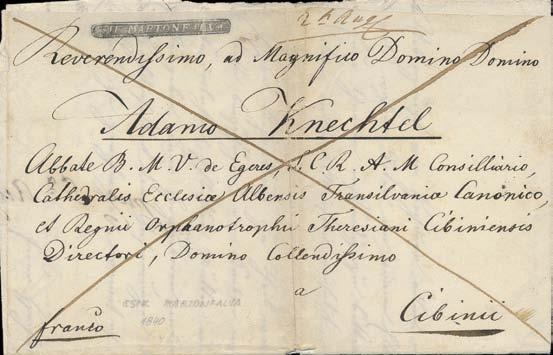 2 t Aug
Reverendissimo, ad Magnifico Domino Domino
Adamo Knechtel
Abbate B. M. V. de Egeres, S. C. R. A. M Consilliario,
Cathedralis Ecclesiæ Albensis Transilvaniæ Canonico,
et Regnii Orphanotrophii Theresiani Cibiniensis
Directori, Domino Collendissimo
a
Cibinii
franco
MARTONFALVA
1840